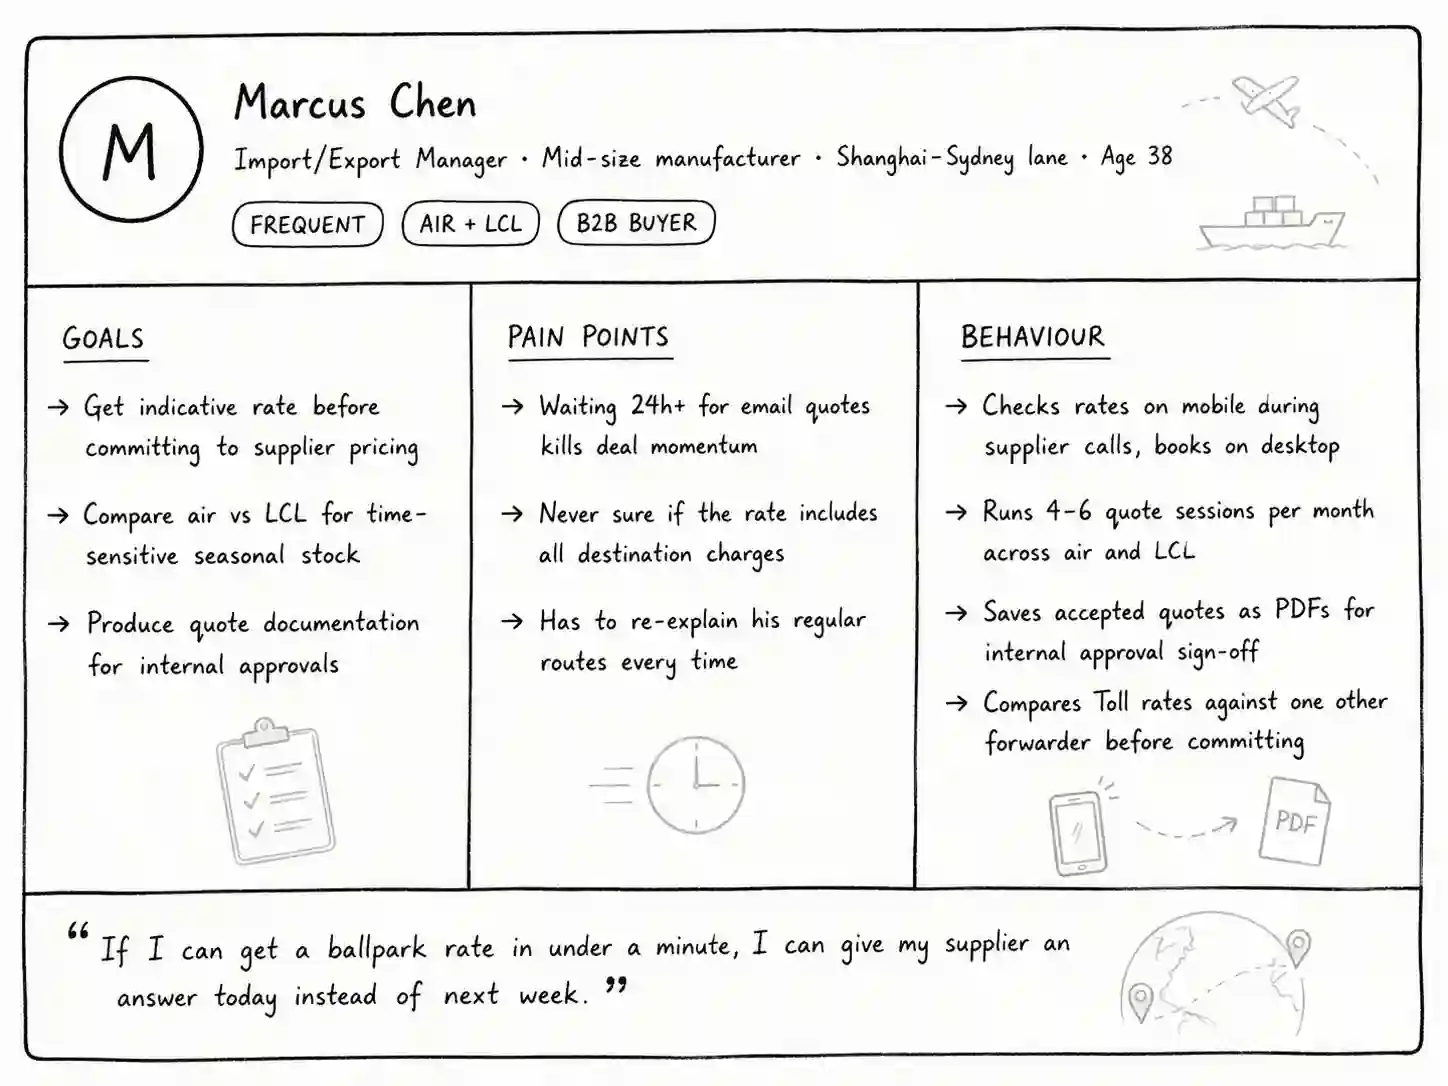 M
Marcus Chen
Import/Export Manager • Mid-size manufacturer • Shanghai-Sydney lane • Age 38
FREQUENT
AIR + LCL
B2B BUYER
GOALS
→ Get indicative rate before
committing to supplier pricing
→ Compare air vs LCL for time-
sensitive seasonal stock
→ Produce quote documentation
for internal approvals
PAIN POINTS
→ Waiting 24h+ for email quotes
kills deal momentum
→ Never sure if the rate includes
all destination charges
→ Has to re-explain his regular
routes every time
BEHAVIOUR
→ Checks rates on mobile during
supplier calls, books on desktop
→ Runs 4-6 quote sessions per month
across air and LCL
→ Saves accepted quotes as PDFs for
internal approval sign-off
→ Compares Toll rates against one other
forwarder before committing
PDF
“If I can get a ballpark rate in under a minute, I can give my supplier an
answer today instead of next week.”